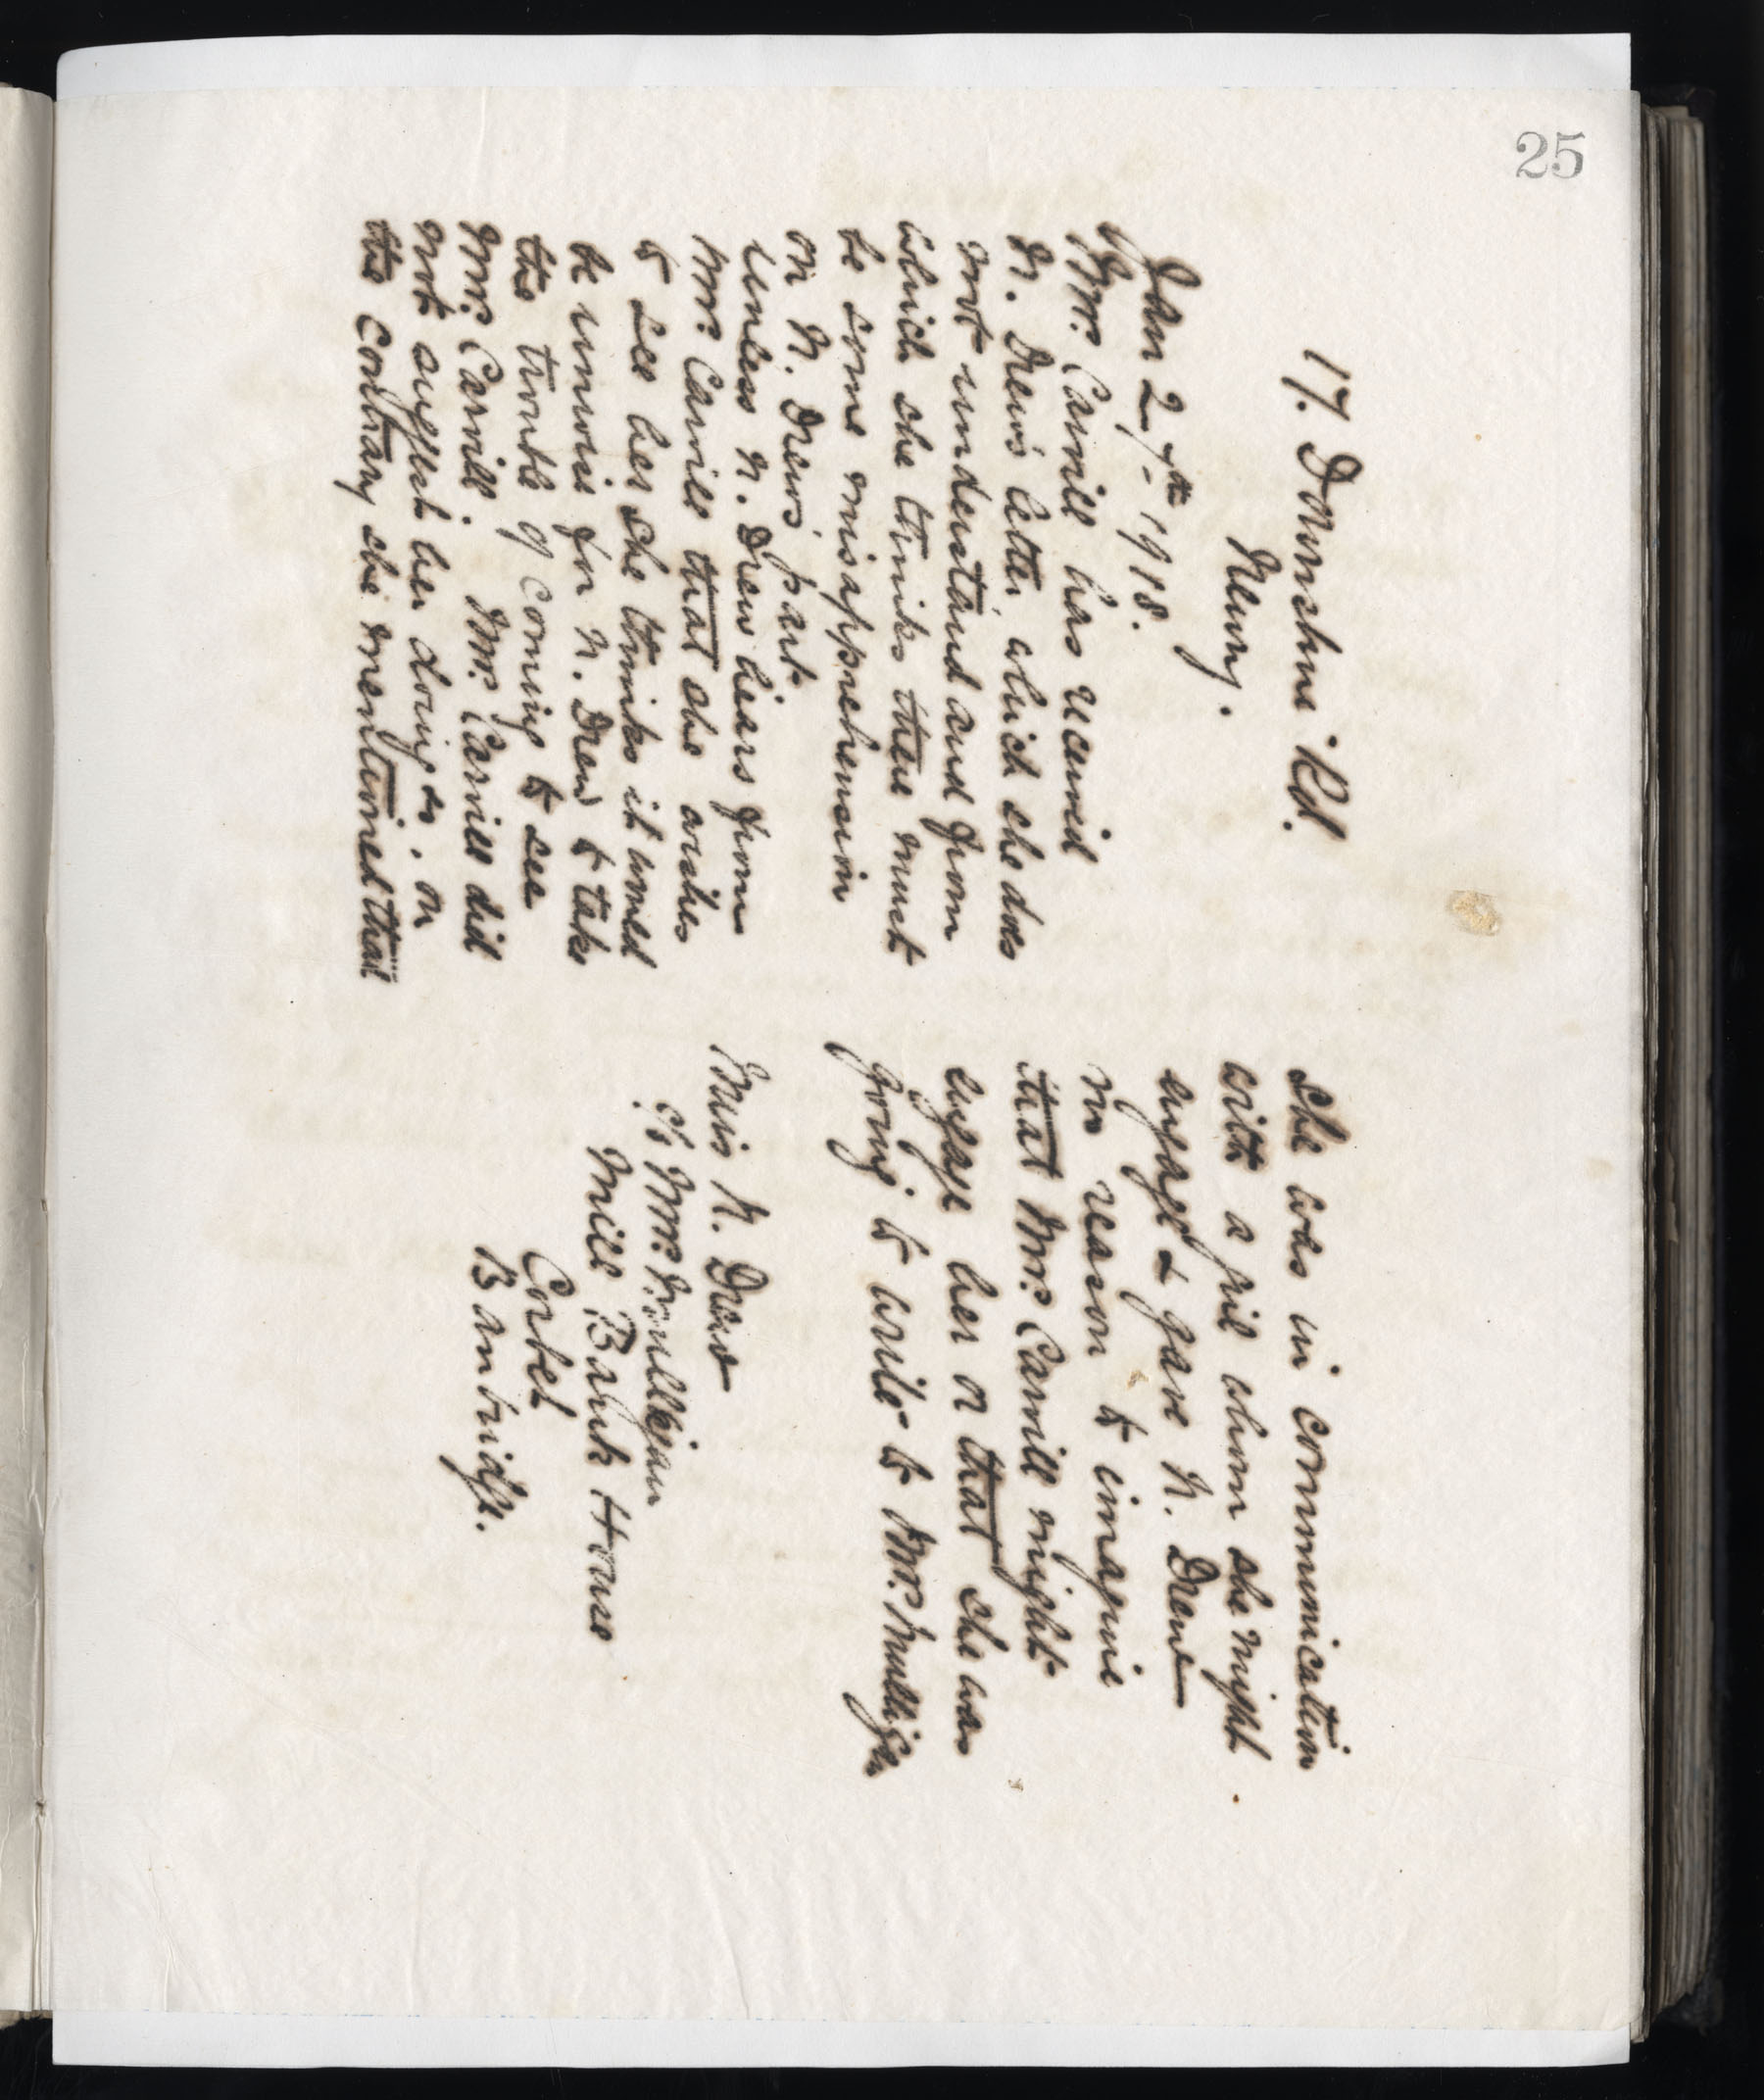 25
17. Downshire Rd.
Newry.
Jan 27th 1918.
Mrs. Carvill has received
N. Drew's letter which she does
not understand and from
which she thinks there must
be some misapprehension
on N. Drew's part.
Unless N. Drew hears from
Mrs. Carvill that she wishes
to see her she thinks it would
be unwise for N. Drew to take
the trouble of coming to see
Mrs. Carvill. Mrs. Carvill did
not suggest her doing so. on
the contrary she mentioned that
she was in communication
with a girl whom she might
engage & gave N. Drew
no reason to imagine
that Mrs. Carvill might
engage her or that she was
going to write to Mrs. Mulligan
Miss N. Drew
c/o Mrs. Mulligan
Mill Bank House
Corbet
Banbridge.